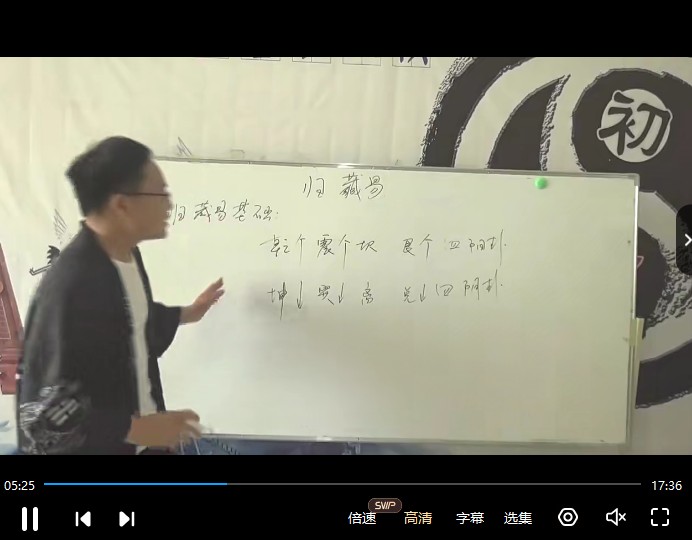 初
归藏易
归藏易基础:
乾个 震个 坎 艮个 四阳卦.
坤↓ 巽↓ 离 兑↓ 四阴卦.
05:25
17:36
SVIP
倍速 高清 字幕 选集